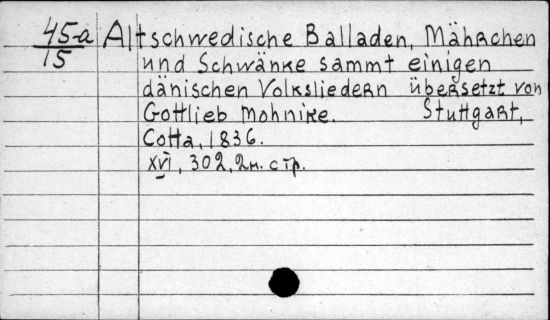 45-a
15
Altschwedische Balladen, Mährchen
und Schwänke sammt einigen
dänischen Volksliedern übersetzt von
Gottlieb Mohnike. Stuttgart,
Cotta, 1836.
XVI, 302, 2н. стр.